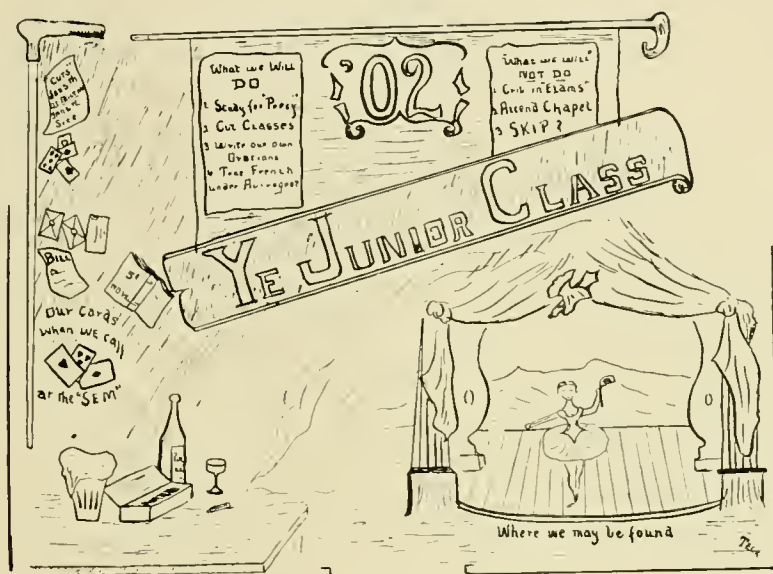 "Cuts"
What we Will
DO
1 Study for "Percy"
2 Cut Classes
3 Write our own
Orations
4 Take French
under
'02
"What we Will"
NOT DO
1 "Crib in Exams"
2 Attend Chapel
3 SKIP?
YE JUNIOR CLASS
5¢
BILL
Our Cards
when WE call
at the "SEM"
Where we may be found